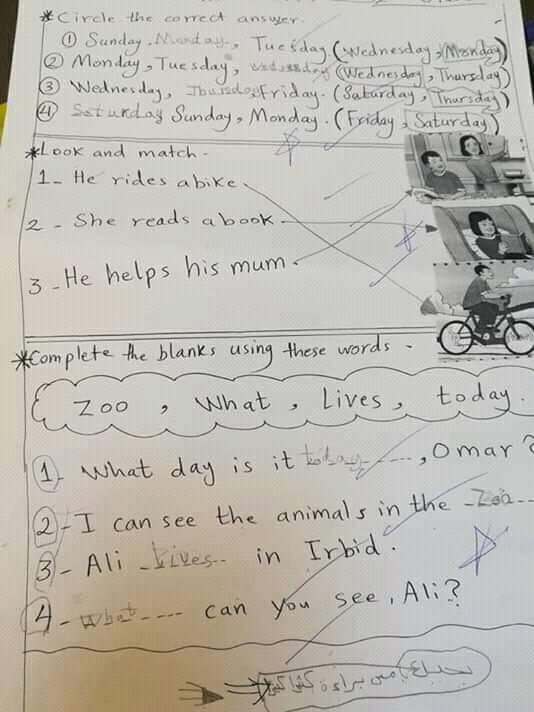 * Circle the correct answer.
① Sunday, Monday, Tuesday (Wednesday, Monday)
② Monday, Tuesday, Wednesday (Wednesday, Thursday)
③ Wednesday, Thursday Friday. (Saturday, Thursday)
④ Saturday Sunday, Monday. (Friday, Saturday)
* Look and match.
1- He rides a bike
2 - She reads a book
3 - He helps his mum
* Complete the blanks using these words -
Zoo, What, Lives, today.
1- What day is it today, Omar?
2 - I can see the animals in the Zoo
3 - Ali Lives in Irbid.
4 - What can you see, Ali?